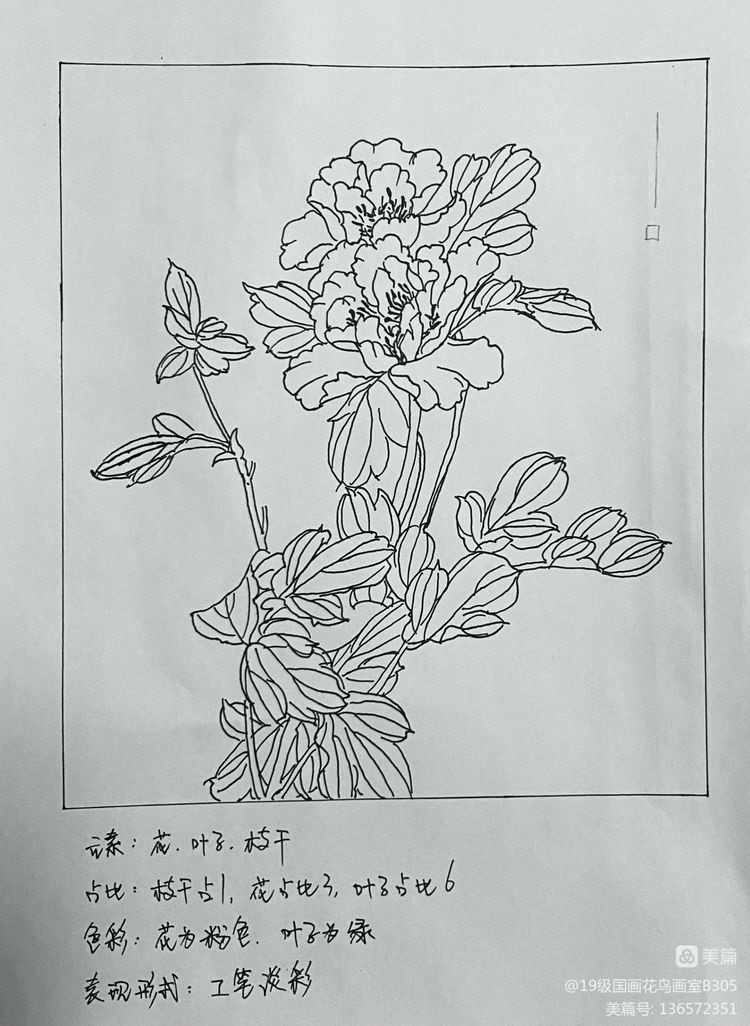 元素：花．叶子．枝干
占比：枝干占1，花占比3，叶子占比6
色彩：花为粉色．叶子为绿
表现形式：工笔淡彩
美篇
@19级国画花鸟画室B305
美篇号: 136572351